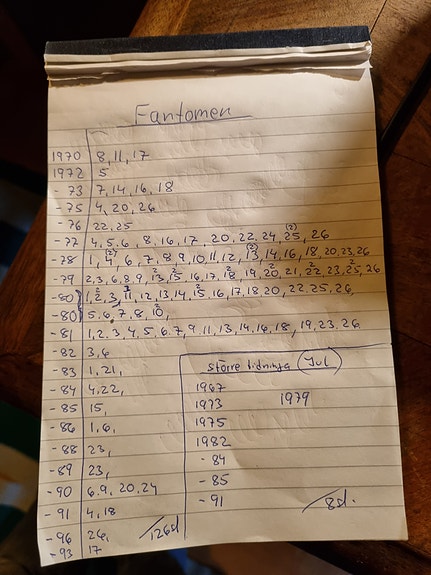 Fantomen
1970 8, 11, 17
1972 5
- 73 7, 14, 16, 18
- 75 4, 20, 26
- 76 22, 25
- 77 4, 5, 6, 8, 16, 17, 20, 22, 24, 25 (2), 26
- 78 1, 4 (2), 6, 7, 8, 9, 10, 11, 12, 13 (2), 14, 16, 18, 20, 23, 26
- 79 2, 3, 6, 8, 9, 13 2, 15 2, 16, 17, 18 2, 19, 20 2, 21, 22 2, 23, 25 2, 26
- 80 1, 2 2, 3, 11, 12, 13, 14, 15 2, 16, 17, 18 20, 22, 25, 26,
- 80 5, 6, 7, 8, 10,
- 81 1, 2, 3, 4, 5, 6, 7, 9, 11, 13, 14, 16, 18, 19, 23, 26
- 82 3, 6
- 83 1, 21,
- 84 4, 22,
- 85 15,
- 86 1, 6,
- 88 23,
- 89 23,
- 90 6, 9, 20, 24
- 91 4, 18
- 96 26,
- 93 17
/126st
större tidninga (Jul)
1967
1973 1979
1975
1982
- 84
- 85
- 91
/8st.